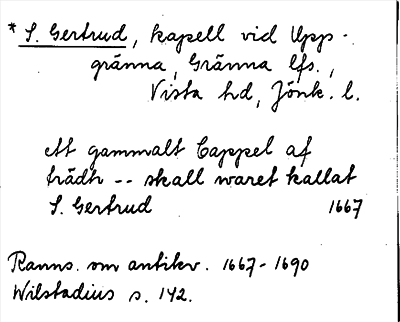 * S. Gertrud, kapell vid Upp-
gränna, Gränna lfs.,
Vista hd, Jönk. l.
ett gammalt Cappel af
trädh -- skall waret kallat
S. Gertrud 1667
Ranns. om antikv. 1667-1690
Wilstadius s. 142.